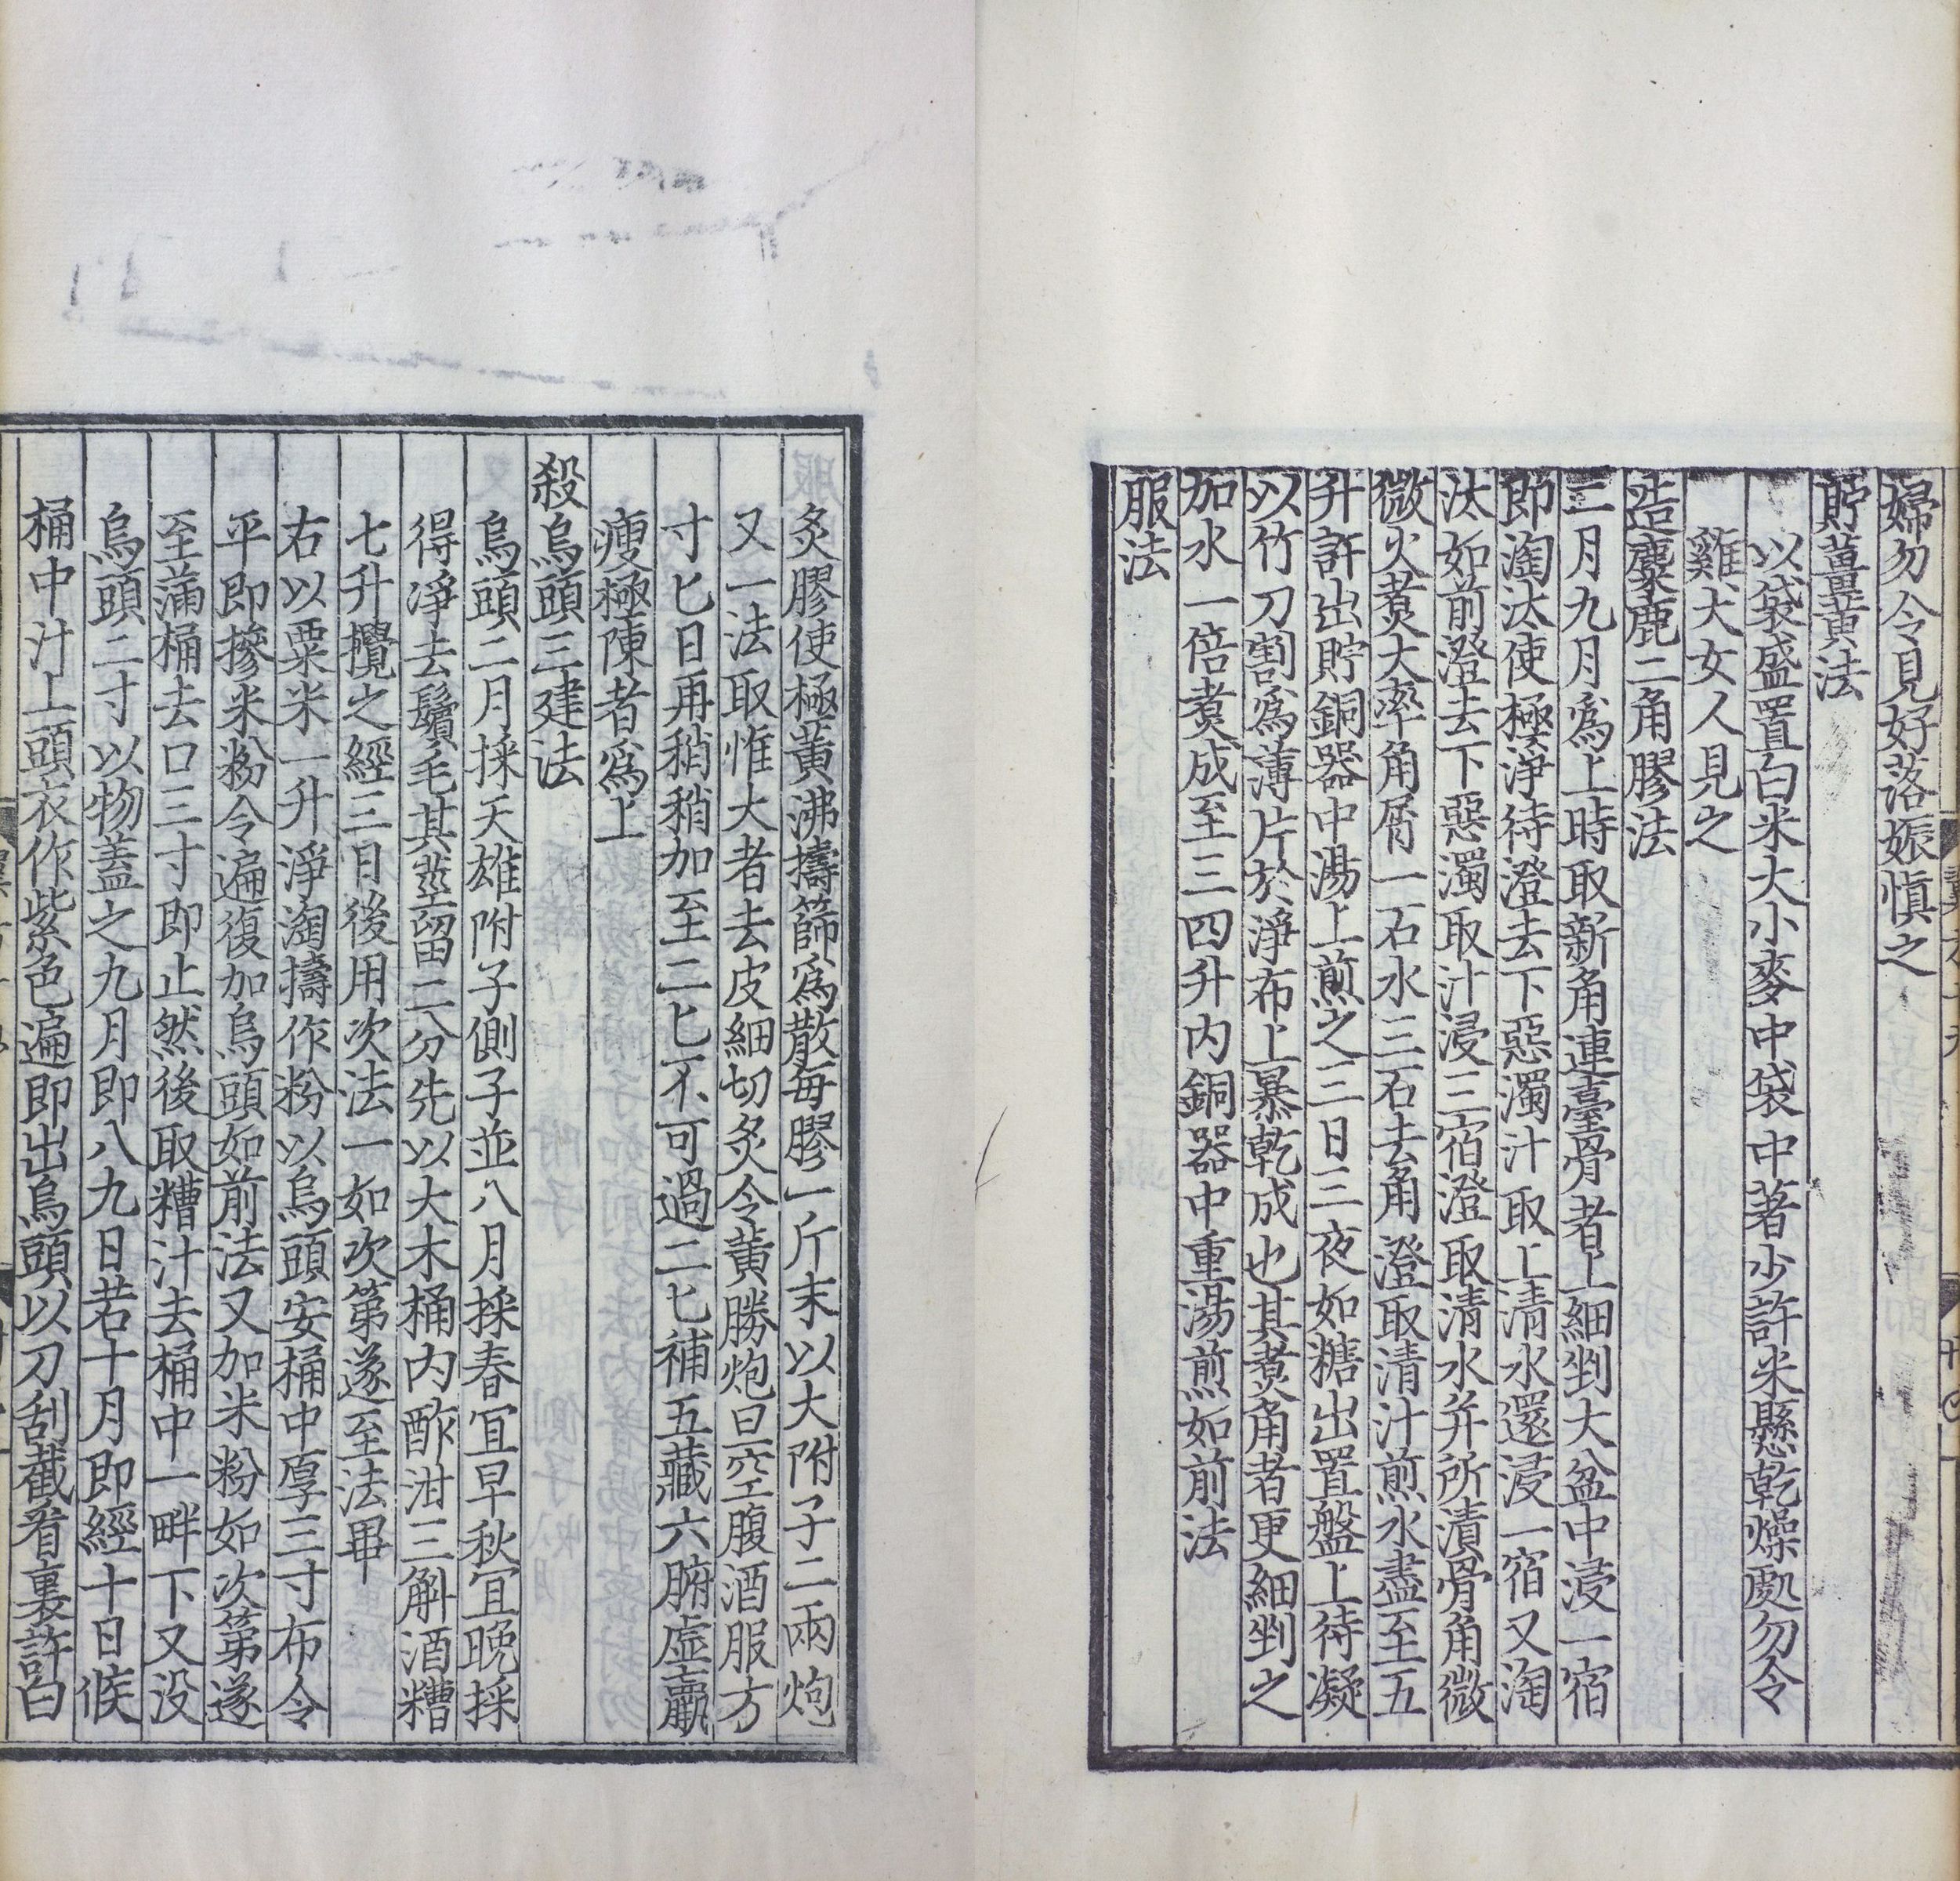 婦勿令見好落娠慎之
貯薑黃法
以袋盛置白米大小麥中袋中著少許米懸乾燥處勿令
雞犬女人見之
造麋鹿二角膠法
二月九月為上時取新角連臺骨者上細剉大盆中浸一宿
即淘汰使極淨待澄去下惡濁汁取上清水還浸一宿又淘
汰如前澄去下惡濁取汁浸三宿澄取清水并所漬骨角微
微火煮大率角屑一石水三石去角澄取清汁煎水盡至五
升許出貯銅器中湯上煎之三日三夜如糖出置盤上待凝
以竹刀割為薄片於淨布上暴乾成也其煮角者更細剉之
加水一倍煮成至三四升内銅器中重湯煎如前法
服法
炙膠使極黃沸擣篩為散每膠一斤末以大附子二兩炮
又一法取惟大者去皮細切炙令黃勝炮旦空腹酒服方
寸匕日再稍稍加至二匕不可過二匕補五藏六腑虛羸
瘦極陳者為上
殺烏頭三建法
烏頭二月採天雄附子側子並八月採春宜早秋宜晚採
得淨去鬚毛其莖留二分先以大木桶内酢泔三斛酒糟
七升攪之經三日後用次法一如次第遂至法畢
右以粟米一升淨淘擣作粉以烏頭安桶中厚三寸布令
平即摻米粉令遍復加烏頭如前法又加米粉如次第遂
至滿桶去口三寸即止然後取糟汁去桶中一畔下又没
烏頭二寸以物蓋之九月即八九日若十月即經十日候
桶中汁上頭衣作紫色遍即出烏頭以刀刮截看裏許白